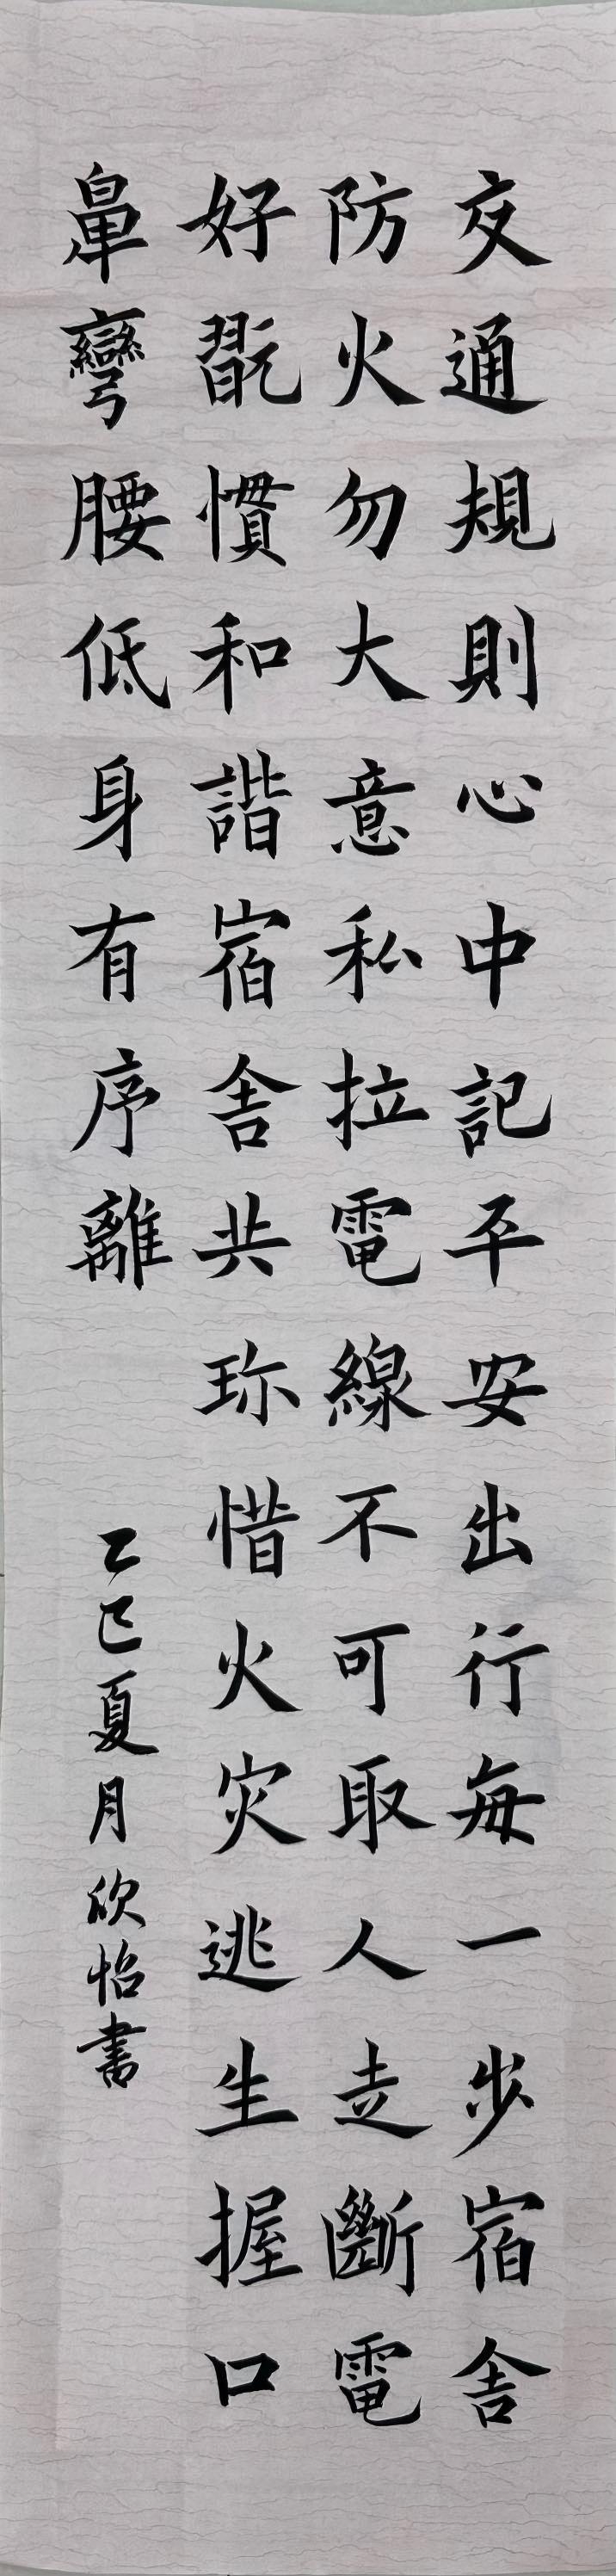 交通規則心中記平安出行每一步宿舍
防火勿大意私拉電線不可取人走斷電
好翫慣和諧宿舍共珎惜火灾逃生握口
鼻彎腰低身有序離
乙巳夏月欣怡書